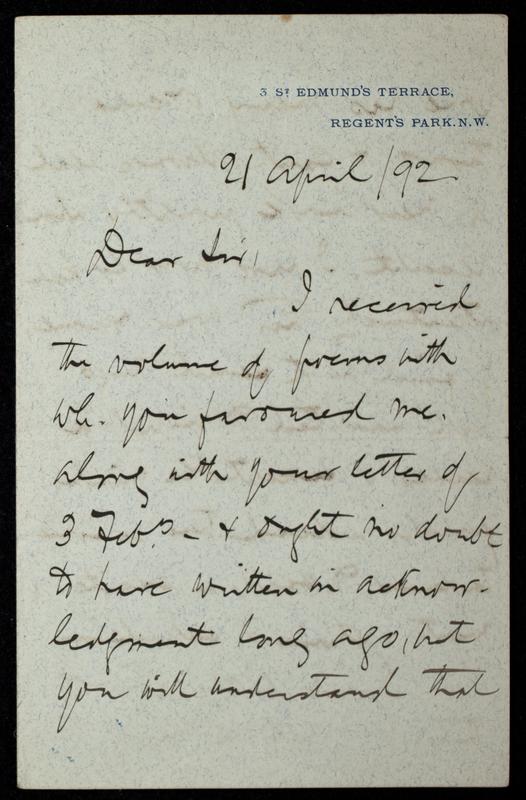 3 St EDMUND'S TERRACE,
REGENT'S PARK.N.W.
21 April /92
Dear Sir,
I received
the volume of poems with
wh. you favoured me,
along with your letter of
3 Feb.y - & ought no doubt
to have written in acknow-
ledgment long ago, but
you will understand that